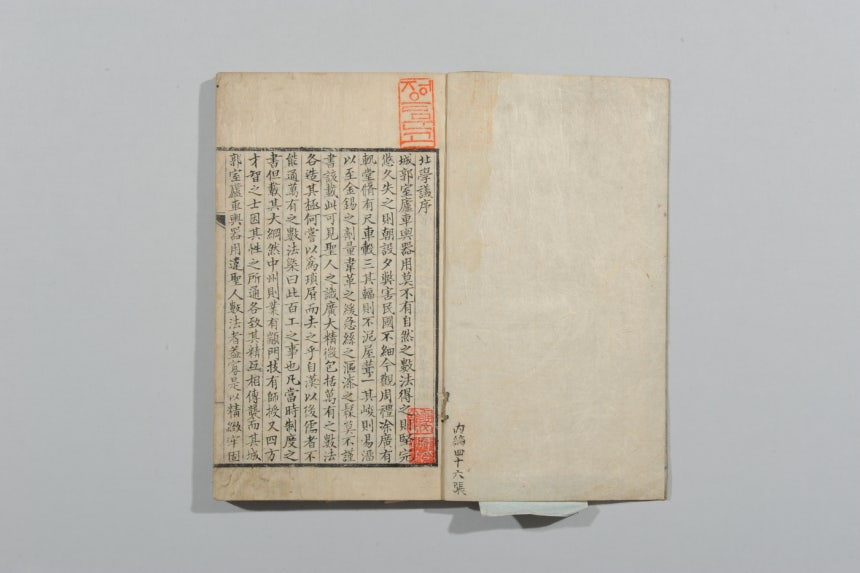 內編四十六張
北學議序
城郭室廬車輿器用莫不有自然之數法得之則堅完
悠久失之則朝設夕弊害民國不細今觀周禮涂廣有
軌堂脩有尺車轂三其輻則不泥屋葺一其峻則易溜
以至金錫之劑量韋革之緩急絲之漚漆之髹莫不謹
書該載此可見聖人之識廣大精微包括萬有之數法
各造其極何嘗以爲瑣屑而去之乎自漢以後儒者不
能通萬有之數法槩曰此百工之事也凡當時制度之
書但載其大綱然中州則業有顓門技有師授又四方
才智之士因其性之所通各致其精互相傳襲而其城
郭室廬車輿器用違聖人數法者蓋寡是以精緻牢固